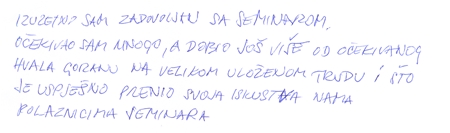 IZUZETNO SAM ZADOVOLJAN SA SEMINAROM,
OČEKIVAO SAM MNOGO, A DOBIO JOŠ VIŠE OD OČEKIVANOG
HVALA GORANU NA VELIKOM ULOŽENOM TRUDU I ŠTO
JE USPJEŠNO PRENIO SVOJA ISKUSTVA NAMA
POLAZNICIMA SEMINARA